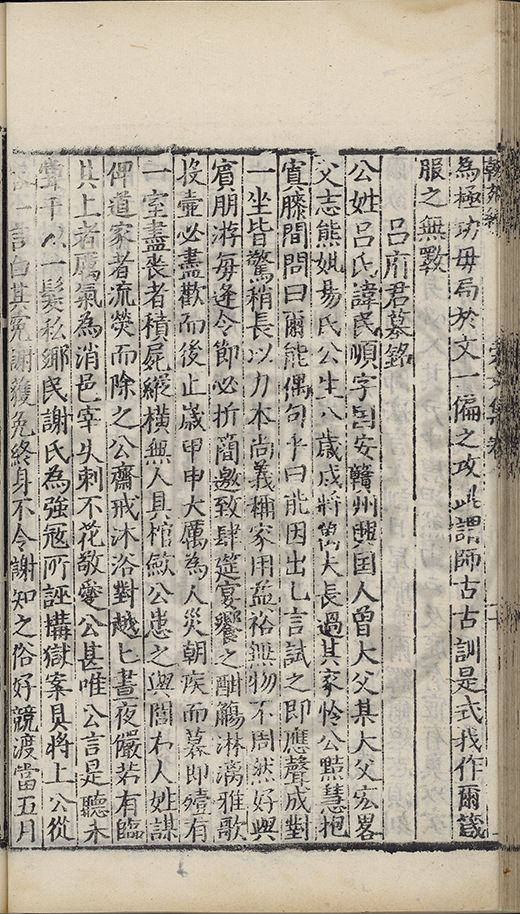 為極功毋局於文一偏之攻此謂師古古訓是式我作爾箴
服之無斁
呂府君墓銘
公姓呂氏諱民順字囯安贛州興囯人曾大父某大父宏畧
父志熊妣昜氏公生八歳戍將萬夫長過其家怜公黠慧抱
寘膝間問曰爾能偶句乎曰能因出七言試之即應聲成對
一坐皆驚稍長以力本尚義稱家用益裕無物不周然好與
賔朋游每逢令節必折簡邀致肆筵宴饗之酬觴淋漓雅歌
投壷必盡歡而後止歳甲申大厲為人災朝疾而暮即殪有
一室盡丧者積屍縱橫無人具棺歛公患之與閭右人姓謀
俾道家者流禜而除之公齋戒沐浴對越七晝夜儼若有臨
其上者厲氣為消邑宰失剌不花敬愛公甚唯公言是聽未
嘗干以一髮私鄉民謝氏為強冦所誣搆獄案具將上公從
一言白其寃謝獲免終身不令謝知之俗好競渡當五月